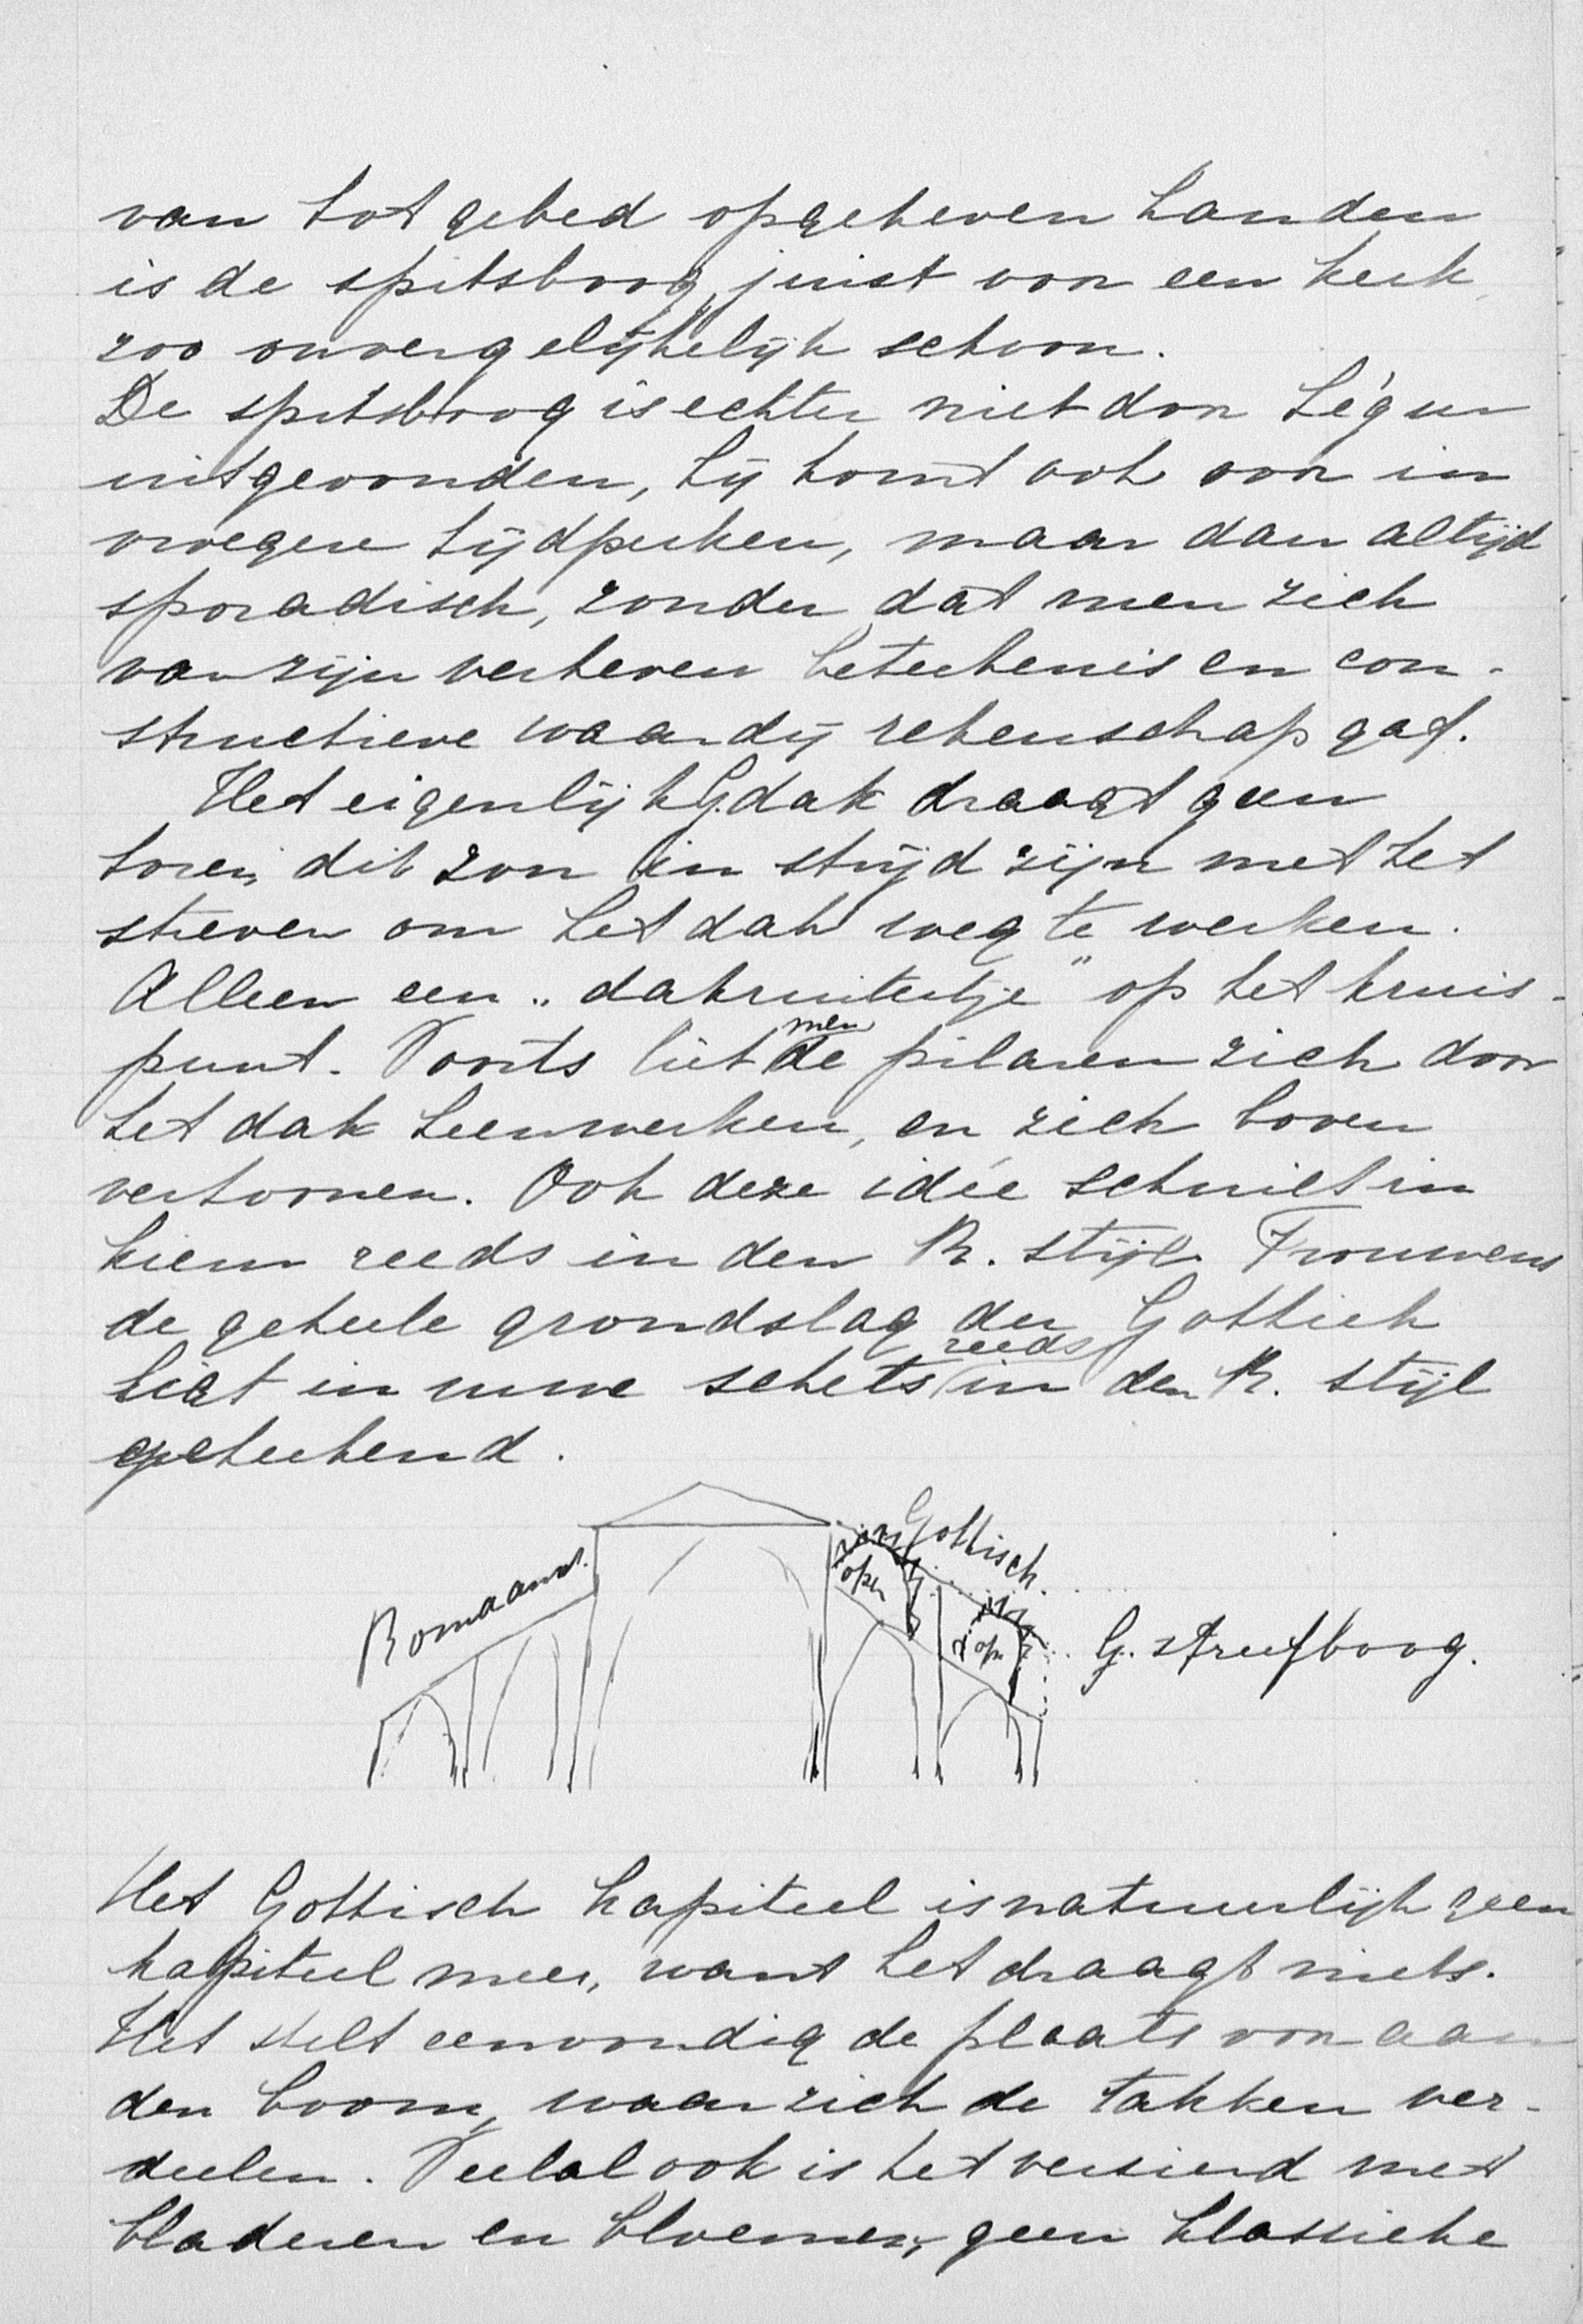 van tot gebed opgeheven handen
is de spitsboog, juist voor een kerk
zoo onvergelijkelijk schoon.
De spitsboog is echter niet door
uitgevonden, hij komt ook voor in
vroegere tijdperken, maar dan altijd
sporadisch, zonder dat men zich
van zijn verheven beteekenis en con-
structieve waardij rekenschap gaf.
Het eigenlijk G. dak draagt geen
toren, dit zou in strijd zijn met het
streven om het dak weg te werken.
Alleen een „dakruitertje" op het kruis-
punt. Voorts liet men de pilaren zich door
het dak heenwerken, en zich boven
vertoonen. Ook deze idée schuilt in
kiem reeds in den R. stijl. Trouwens
de geheele grondslag der Gothiek
ligt in ruwe schets reeds in den R. stijl
geteekend.
Romaansch.
Gothisch.
open
open
G. streefboog.
Het Gothisch kapiteel is natuurlijk geen
kapiteel meer, want het draagt niets.
Het stelt eenvoudig de plaats voor aan
den boom, waar zich de takken ver-
deelen. Veelal ook is het versierd met
bladeren en bloemen, geen klassieke